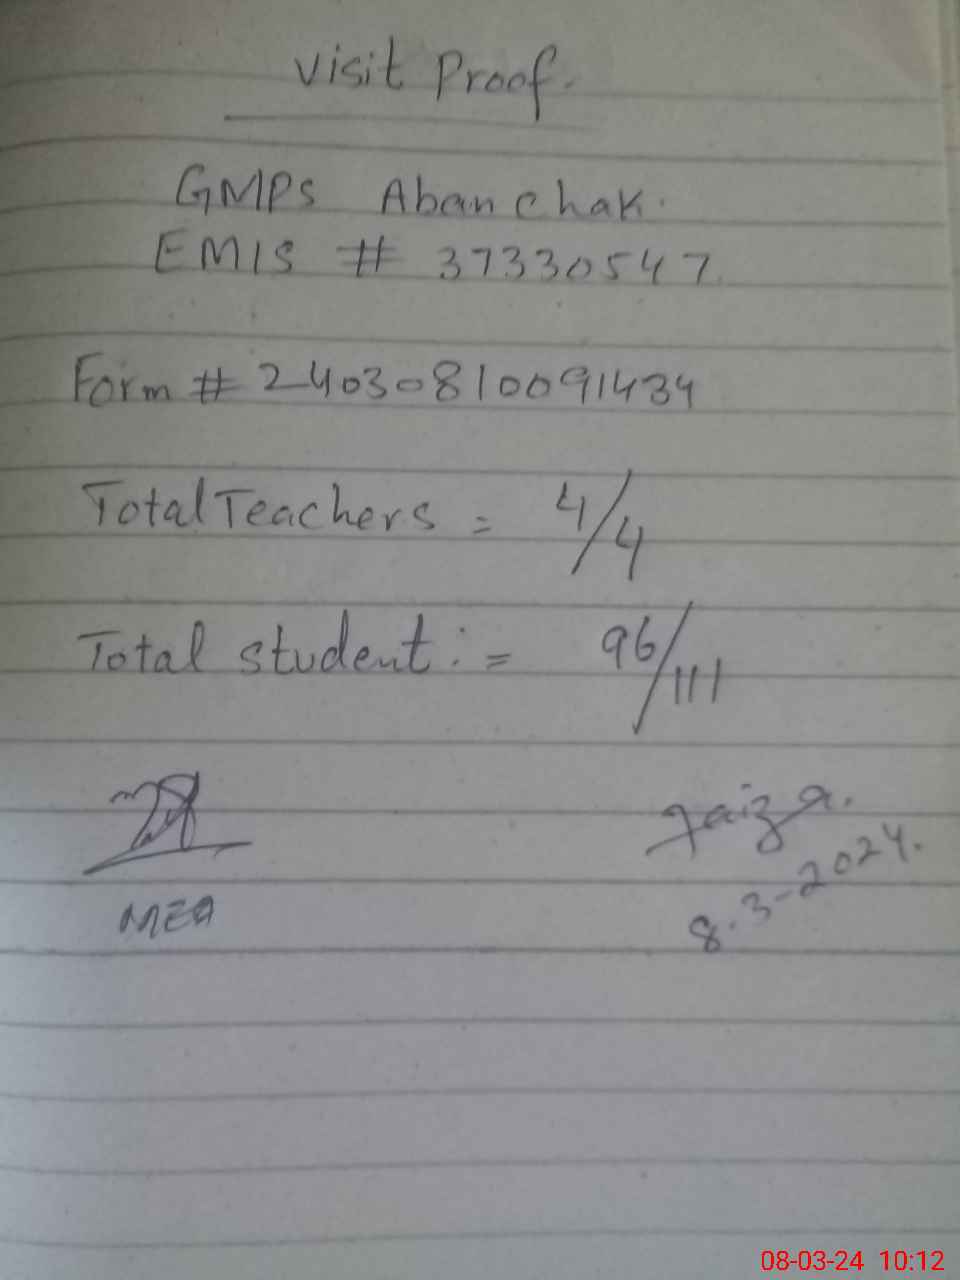 Visit Proof.
GMPS Abanchak.
EMIS # 37330547.
Form # 24030810091434
Total Teachers = 4/4
Total student: = 96/111
MEA
Faiza.
8.3-2024.
08-03-24 10:12